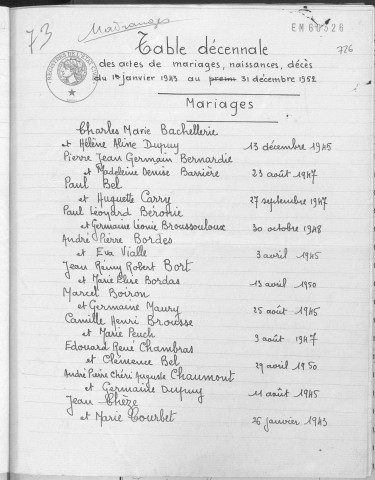 73
Maïranges
EM 60526
726
Table décennale
des actes de mariages, naissances, décès
du 1er janvier 1943 au 31 décembre 1952
Mariages
Charles Marie Bachellerie
et Hélène Aline Dupuy 13 décembre 1945
Pierre Jean Germain Bernardie
et Madeleine Denise Barrière 23 août 1947
Paul Bel
et Huguette Carry 27 septembre 1947
Paul Léonard Béronie
et Germaine Léonie Broussouloux 30 octobre 1948
André Pierre Bordes
et Eva Vialle 3 avril 1945
Jean Rémy Robert Bort
et Marie Elise Bordas 13 avril 1950
Marcel Boiron
et Germaine Maury 25 août 1945
Camille Henri Brousse
et Marie Peuch 9 août 1947
Edouard René Chambras
et Clémence Bel 29 avril 1950
André Pierre Chéri Auguste Chaumont
et Germaine Dupuy 11 août 1945
Jean Chèze
et Marie Courbet 26 janvier 1943